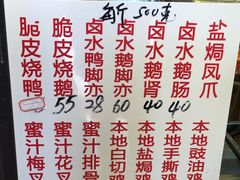 每斤500克
脆皮烧鸭
脆皮烧鹅
55
卤水鸭脚亦
28
卤水鹅脚亦
60
卤水鹅肾
40
卤水鹅肠
40
盐焗凤爪
蜜汁梅叉
蜜汁花叉
蜜汁排骨
本地白切鸡
本地盐焗鸡
本地手撕鸡
本地豉油鸡